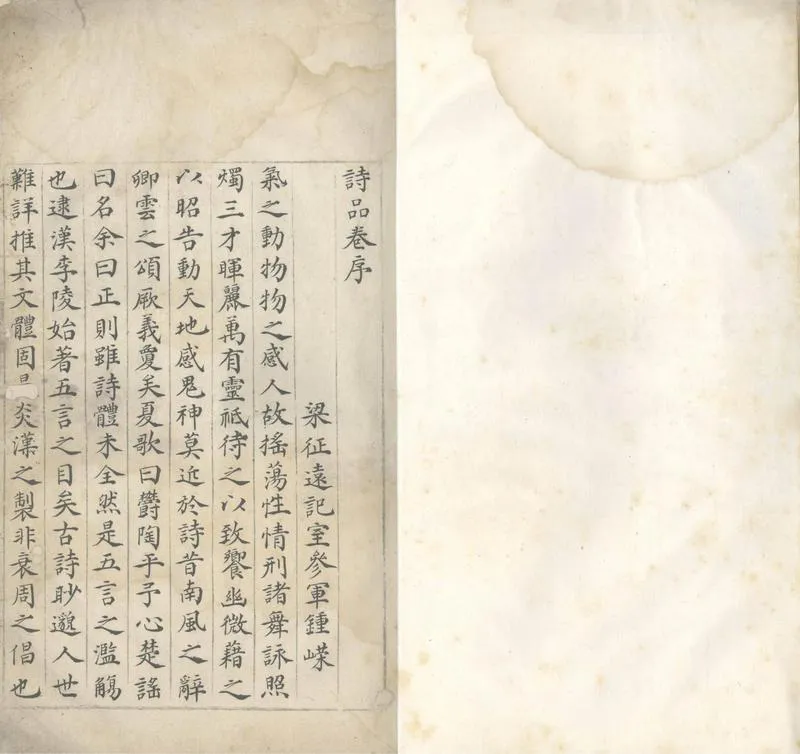 詩品卷序
梁征遠記室參軍鍾嶸
氣之動物物之感人故搖蕩性情刑諸舞詠照
燭三才暉麗萬有靈祇待之以致饗幽微藉之
以昭告動天地感鬼神莫近於詩昔南風之辭
卿雲之頌厥義夐矣夏歌曰欝陶乎予心楚謠
曰名余曰正則雖詩體未全然是五言之濫觴
也逮漢李陵始著五言之目矣古詩眇邈人世
難詳推其文體固是炎漢之製非衰周之倡也